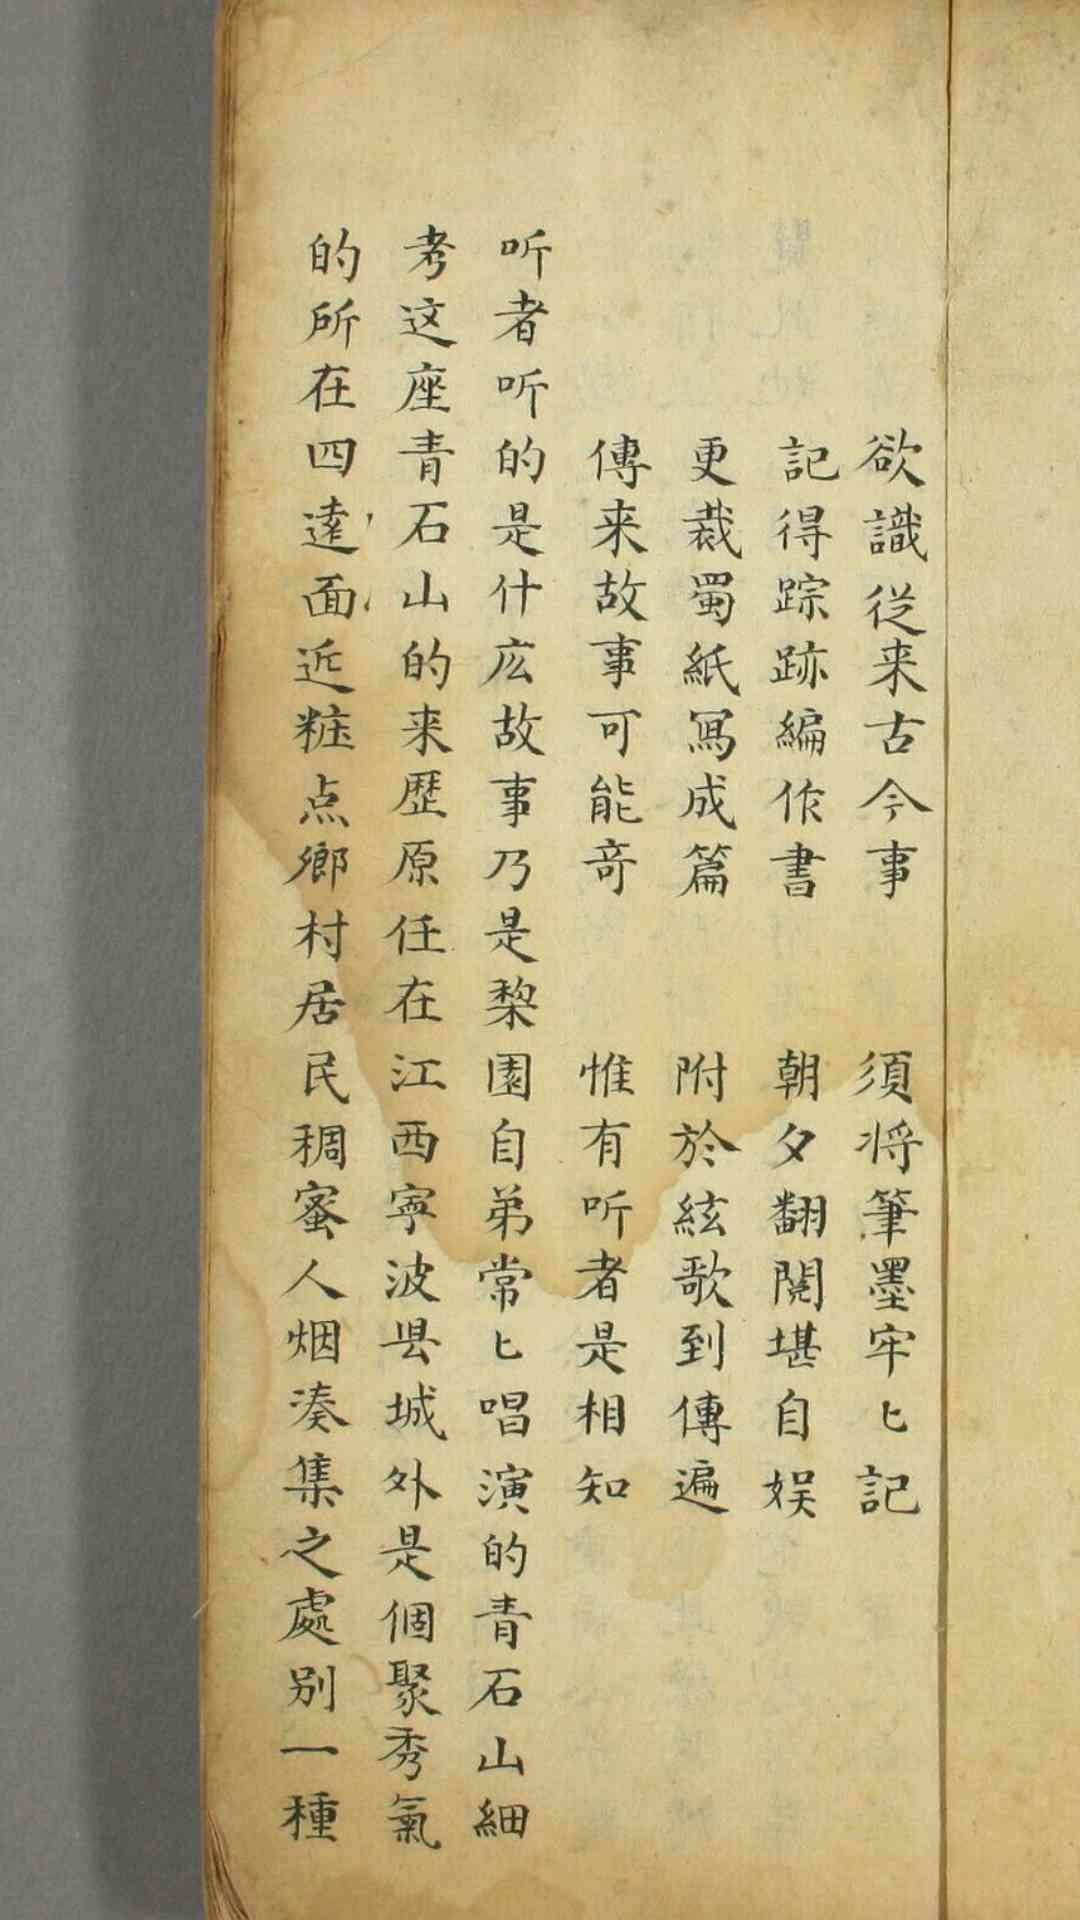 欲識従来古今事　須将筆墨牢匕記
記得踪跡編作書　朝夕翻閱堪自娱
更裁蜀紙寫成篇　附於絃歌到傳遍
傳来故事可能奇　惟有听者是相知
听者听的是什庅故事乃是梨園自弟常匕唱演的青石山細
考这座青石山的来歷原任在江西寧波县城外是個聚秀氣
的所在四逺面近粧点鄉村居民稠蜜人烟凑集之處别一種